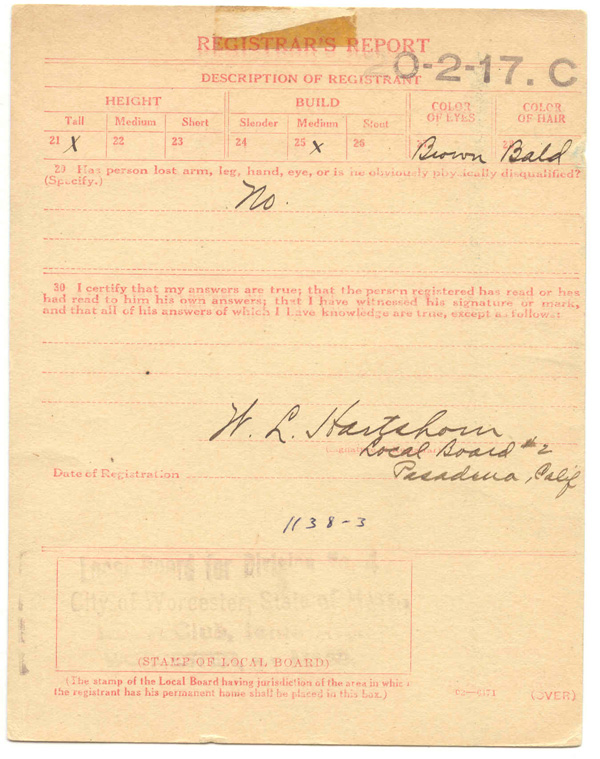 REGISTRAR'S REPORT
0-2-17. C
DESCRIPTION OF REGISTRANT
HEIGHT BUILD COLOR OF EYES COLOR OF HAIR
Tall Medium Short Slender Medium Stout
21 X 22 23 24 25 X 26 Brown Bald
29 Has person lost arm, leg, hand, eye, or is he obviously physically disqualified?
(Specify.)
No.
30 I certify that my answers are true; that the person registered has read or has
had read to him his own answers; that I have witnessed his signature or mark,
and that all of his answers of which I have knowledge are true, except as follows:
W. L. Hartshorn
Local Board #2
Date of Registration Pasadena, Calif
1138-3
Local Board for Division No. 4
City of Worcester, State of Mass.,
Club,
(STAMP OF LOCAL BOARD)
(The stamp of the Local Board having jurisdiction of the area in which
the registrant has his permanent home shall be placed in this box.)
(OVER)